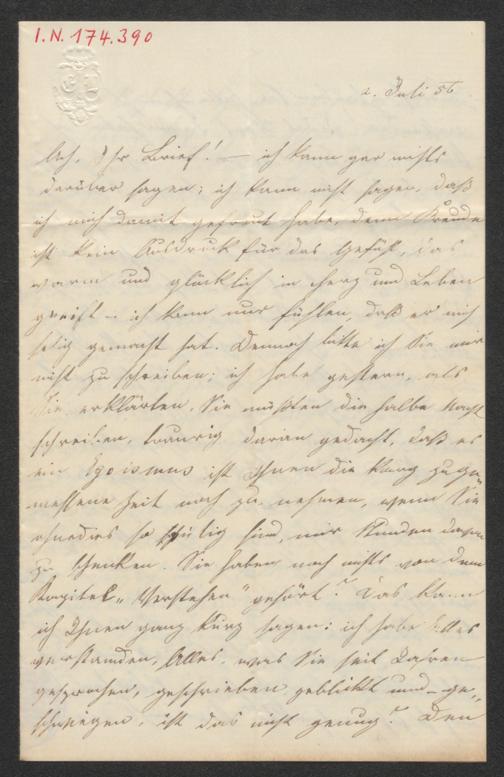 I.N. 174.390
2. Juli 56
Ach, Ihr Brief! — ich kann gar nichts
darüber sagen; ich kann nicht sagen, daß
ich mich damit gefreut habe, denn Freude
ist kein Ausdruck für das Gefühl, das
warm und glücklich in Herz und Leben
greift – ich kann nur fühlen, daß er mich
selig gemacht hat. Dennoch bitte ich Sie mir
nicht zu schreiben; ich habe gestern, als
Sie erklärten, Sie müßten die halbe Nacht
schreiben, traurig daran gedacht, daß es
ein Egoismus ist Ihnen die karg zuge„
messene Zeit noch zu nehmen, wenn Sie
ohnedies so gütig sind, mir Stunden davon
zu schenken. Sie haben noch nichts von dem
Kapitel „Verstehen" gehört? Das kann
ich Ihnen ganz kurz sagen: ich habe Alles
verstanden, Alles, was Sie seit Jahren
gesprochen, geschrieben geblickt und – ge„
schwiegen, ist das nicht genug? Den